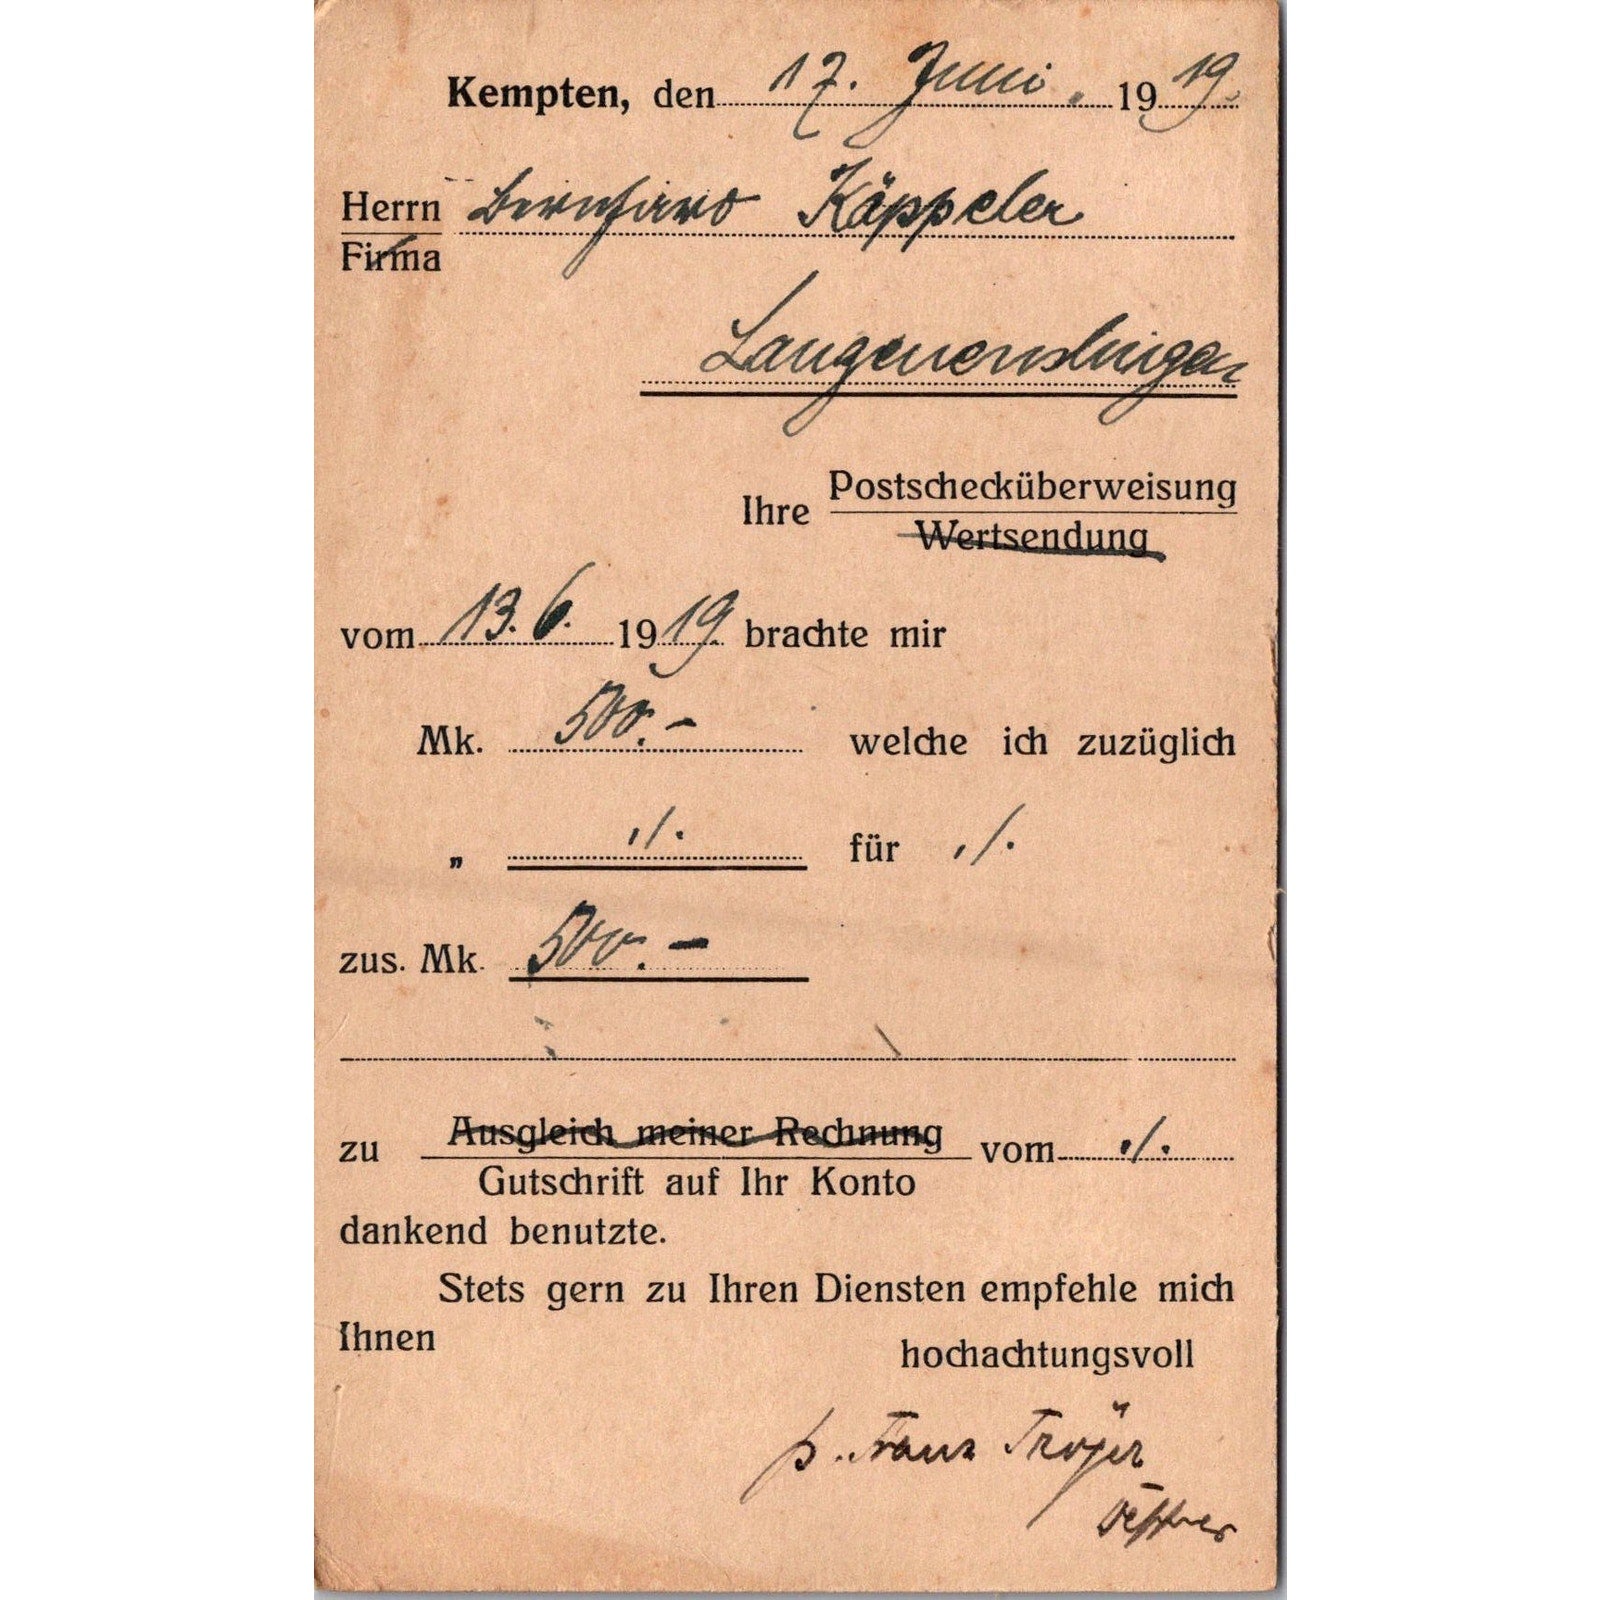 Kempten, den 17. Juni. 1919.
Herrn Bernhard Käppeler
Firma
Langenenslingen
Ihre Postschecküberweisung
Wertsendung
vom 13. 6. 1919 brachte mir
Mk. 500.- welche ich zuzüglich
„ ./. für ./.
zus. Mk. 500.-
zu Ausgleich meiner Rechnung vom ./.
Gutschrift auf Ihr Konto
dankend benutzte.
Stets gern zu Ihren Diensten empfehle mich
Ihnen
hochachtungsvoll
p. Franz